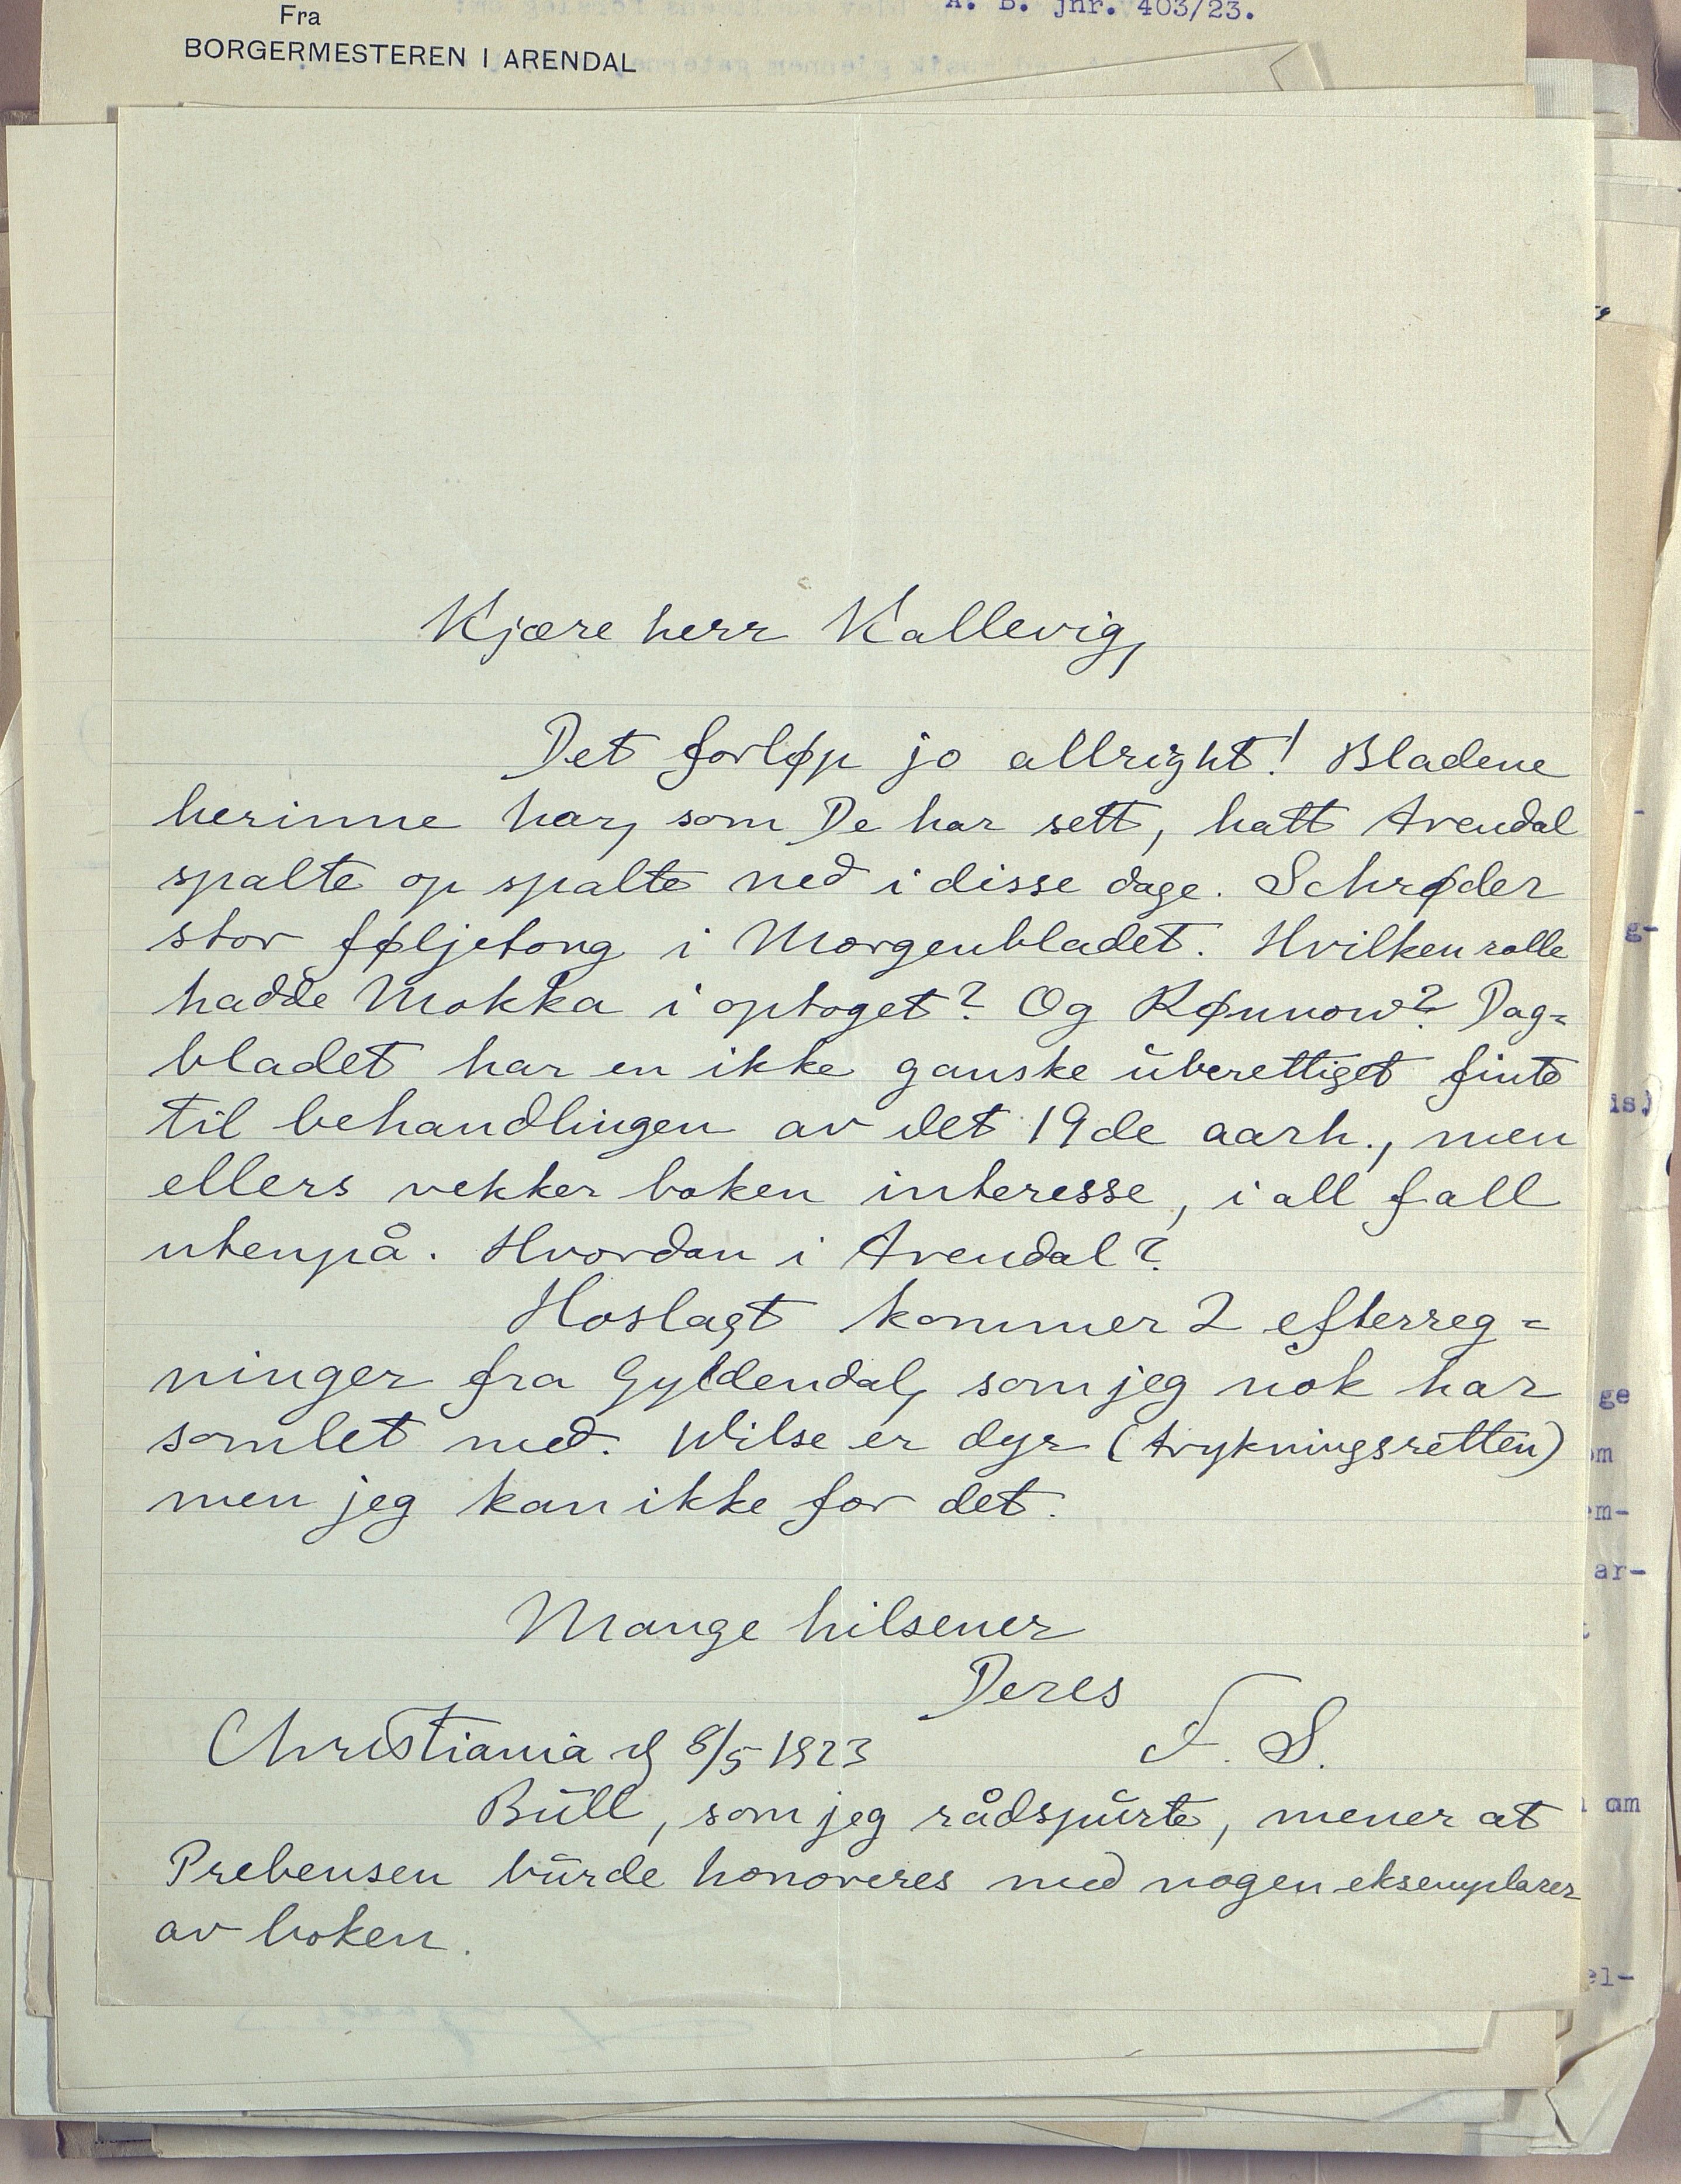 Fra
BORGERMESTEREN I ARENDAL
A. B. jnr. 403/23.
Kjære herr Kallevig,
Det forløp jo allright! Bladene
herinne har, som De har sett, hatt Arendal
spalte op spalte ned i disse dage. Schrøder
stor føljetong i Morgenbladet. Hvilken rolle
hadde Mokka i optoget? Og Rønnow? Dag=
bladet har en ikke ganske uberettiget finte
til behandlingen av det 19de aarh., men
ellers vekker boken interesse, i all fall
utenpå. Hvordan i Arendal?
Hoslagt kommer 2 efterreg=
ninger fra Gyldendal, som jeg nok har
somlet med. Wilse er dyr (trykningsretten)
men jeg kan ikke for det.
Mange hilsener
Deres
F. S.
Christiania d 8/5 1923
Bull, som jeg rådspurte, mener at
Prebensen burde honoreres med nogen eksemplarer
av boken.
g-
is)
ge
om
em-
ar-
om
el-